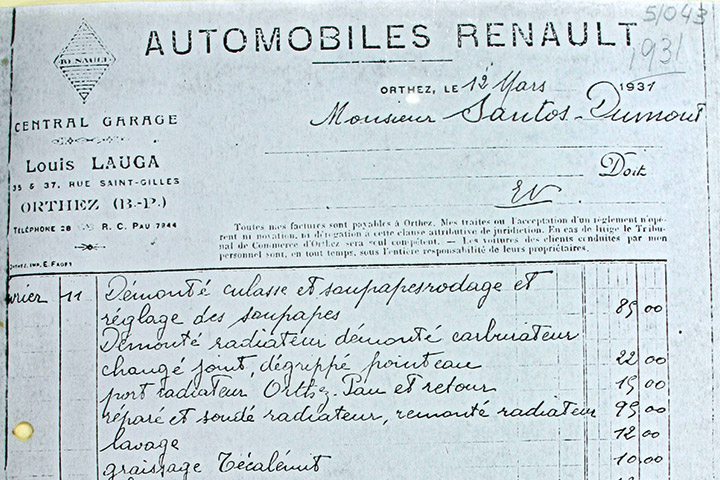 51043
1931
RENAULT
AUTOMOBILES RENAULT
ORTHEZ, LE 12 Mars 1931
Monsieur Santos-Dumont
CENTRAL GARAGE
Louis LAUGA
35 & 37, RUE SAINT-GILLES
ORTHEZ (B.-P.)
TÉLÉPHONE 28 R. C. PAU 7944
ORTHEZ, IMP. E. FAGET
Doit
Toutes mes factures sont payables à Orthez. Mes traites ou l'acceptation d'un règlement n'opè-
rent ni novation, ni dérogation à cette clause attributive de juridiction. En cas de litige le Tribu-
nal de Commerce d'Orthez sera seul compétent. — Les voitures des clients conduites par mon
personnel sont, en tout temps, sous l'entière responsabilité de leurs propriétaires.
vrier 11 Démonté culasse et soupapes rodage et
réglage des soupapes 85,00
Démonté radiateur démonté carburateur
changé joint, dégrippé pointeau 22,00
port radiateur Orthez-Pau et retour 15,00
réparé et soudé radiateur, remonté radiateur 95,00
lavage 12,00
graissage Técalémit 10,00